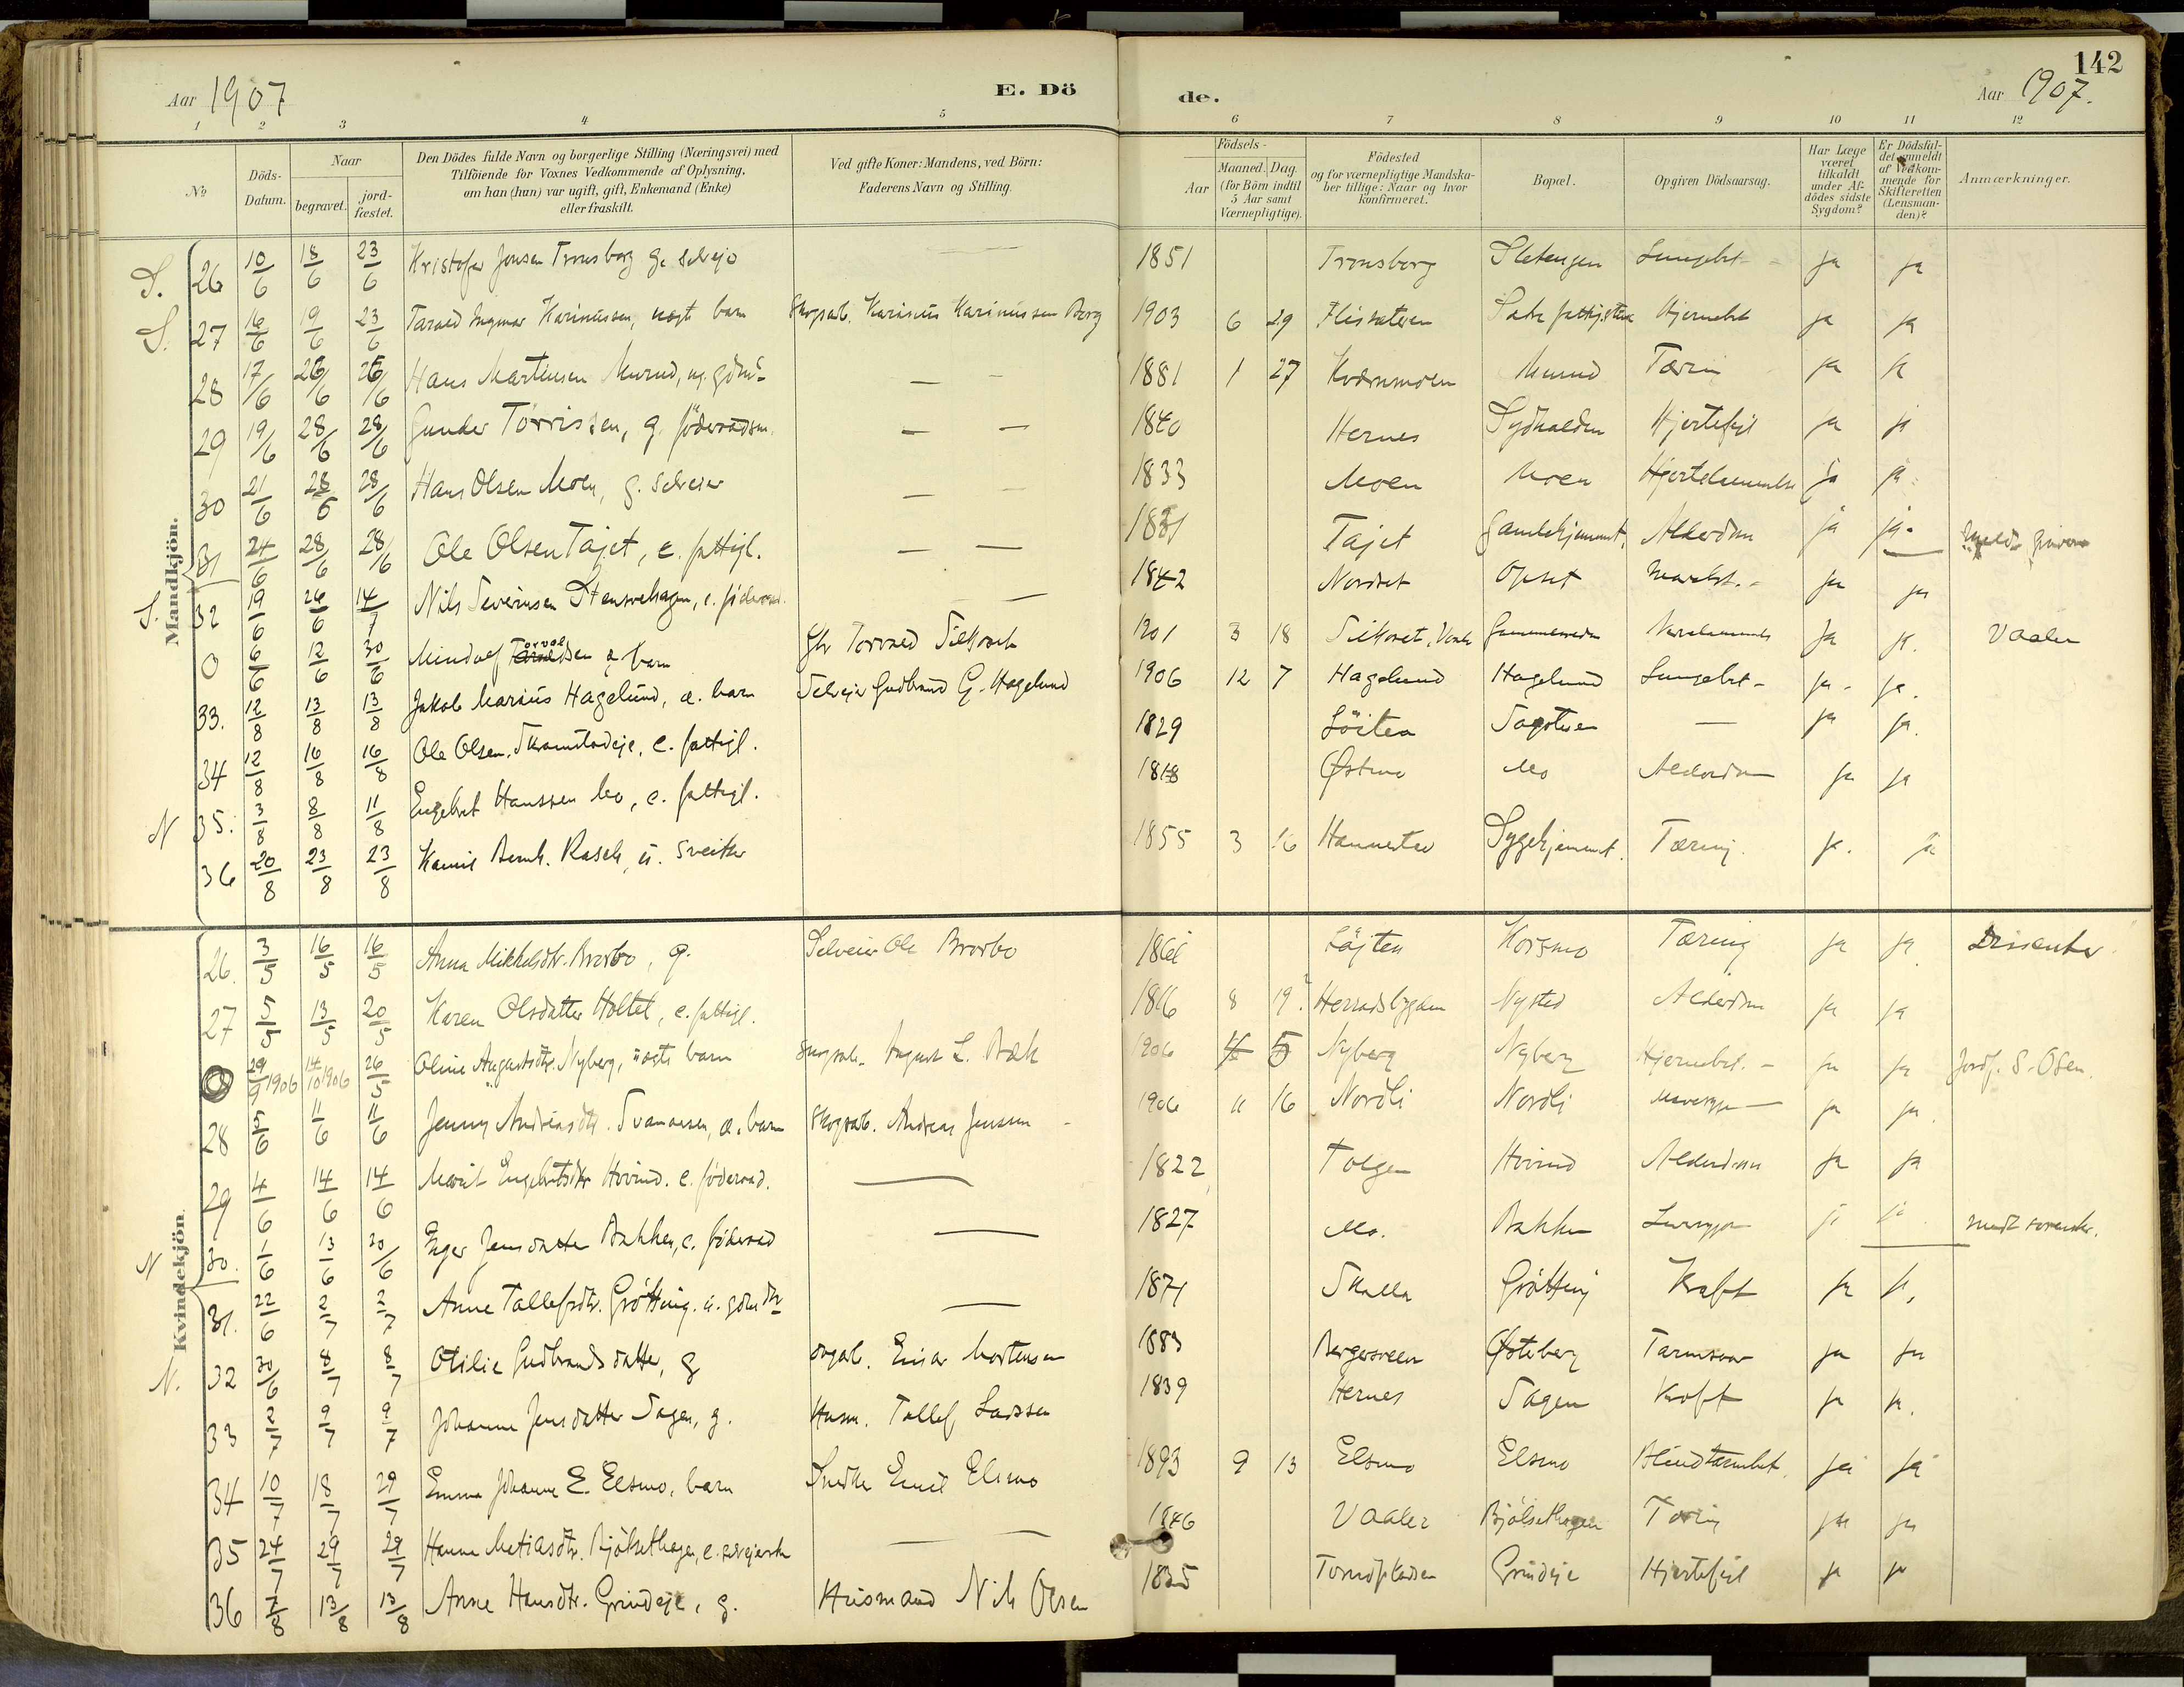 142
Aar 1907 E. Dö de. Aar 1907.
1 2 3 4 5 6 7 8 9 10 11 12
No
Döds-Datum.
Naar
begravet.
jord-fæstet.
Den Dödes fulde Navn og borgerlige Stilling (Næringsvei) med
Tilföiende for Voxnes Vedkommende af Oplysning,
om han (hun) var ugift, gift, Enkemand (Enke)
eller fraskilt.
Ved gifte Koner: Mandens, ved Börn:
Faderens Navn og Stilling.
Födsels-
Aar
Maaned. Dag.
(for Börn indtil
5 Aar samt
Værnepligtige).
Födested
og for værnepligtige Mandska-
ber tillige: Naar og hvor
konfirmeret.
Bopæl.
Opgiven Dödsaarsag.
Har Læge
været
tilkaldt
under Af-
dödes sidste
Sygdom?
Er Dödsfal-
det anmeldt
af Vedkom-
mende for
Skifteretten
(Lensman-
den)?
Anmærkninger.
Mandkjön.
S. 26 10/6 18/6 23/6 Kristofer Jonsen Tronsborg g. selvejer — 1851 Tronsborg Sletengen Lungebet- ja ja
S. 27 16/6 19/6 23/6 Karinusen, uægt barn Skogsarb. Karinus Karinussen Berg 1903 6 29 Flissæteren Hjernebet ja ja
28 17/6 26/6 26/6 Hans Martinsen Murud, ug. — — 1881 1 27 Kværnmoen Murud Tæring ja ja
29 19/6 28/6 28/6 Gunder Törrissen, g. föderaadsm. — — 1840 Hernes Sydhalden Hjertefejl ja ja
30 21/6 28/6 28/6 Hans Olsen Moen, g. selveier — — 1833 Moen Moen Hjertelammelse ja ja
31 24/6 28/6 28/6 Ole Olsen Tajet, e. fattigl. — — 1831 Tajet Gamlehjemmet, Alderdom ja ja.
S. 32 19/6 26/6 14/7 Nils Severinsen Stensvehagen, e. — 1842 Nordset Opset ja ja
0 6/6 12/6 30/6 Mindolf Torvaldsen æ barn Torvald Silkoset 1901 3 18 Silkoset, Vaaler ja ja. Vaaler
33. 12/8 13/8 13/8 Jakob Marius Hagelund, æ. barn Selvejer Gudbrand G. Hagelund 1906 12 7 Hagelund Hagelund Lungebet- ja- ja.
34 12/8 16/8 16/8 Ole Olsen Skramstadeje, e. fattigl. 1829 Löiten Sagstuen — ja ja.
N 35. 3/8 8/8 11/8 Engebret Hanssen Mo, e. fattigl. 1818 Østmo Mo Alderdom ja ja
36 20/8 23/8 23/8 Kamil Bernh. Rasch, ü. sveitser 1855 3 16 Hannestad Sygehjemmet. Tæring. ja. ja
Kvindekjön.
26. 3/5 16/5 16/5 Anna Mikkelsdtr. Brorbo, g. Selveier Ole Brorbo 1866 Löjten Korsmo Tæring ja ja. Dissenter.
27 5/5 13/5 20/5 Karen Olsdatter Holtet, e. fattigl. 1816 8 19? Herradsbygden Nysted Alderdom ja ja
0 29/9 1906 14/10 1906 26/5 Oline Augustsdtr. Nyberg, uægte barn Skogsarb. August L. Bæk 1906 4 5 Nyberg Nyberg Hjernebet.- ja ja Jordf. S. Osen.
28 5/6 11/6 11/6 Jenny Andreasdtr. Svanaasen, æ. barn Skogsarb. Andreas Jenssen 1906 11 16 Nordli Nordli Mavesyge ja ja.
29 4/6 14/6 14/6 Marit Engebretsdtr Hovind. e. föderaad. — 1822 Tolgen Hovind Alderdom ja ja
N 30. 1/6 13/6 30/6 Inger Jensdatter Bakken, e. föderaad — 1827 Mo. Bakken ja ja.
31. 22/6 2/7 2/7 Anne Tollefsdtr. Grötting. u. — 1871 Skalla Grötting Kræft ja ja,
N. 32 30/6 8/7 8/7 Otilie Gudbrandsdatter, g Einar Mortensen 1883 Bergersveen Østeberg ja ja
33 2/7 9/7 9/7 Johanne Jensdatter Sagen, g. Husm. Tollef Larssen 1839 Hernes Sagen Kræft ja ja.
34 10/7 18/7 29/7 Emma Johanne E. Elsmo, barn Snedker Emil Elsmo 1893 9 13 Elsmo Elsmo Blindtarmbet. ja ja
35 24/7 29/7 29/7 Hanne Matiasdtr. Bjölsethagen, e. selvejerske — 1846 Vaaler Bjölsethagen Tæring ja ja
36 7/8 13/8 13/8 Anne Hansdtr. Grindeje, g. Husmand Nils Olsen 1835 Grindeje Hjertefejl ja ja